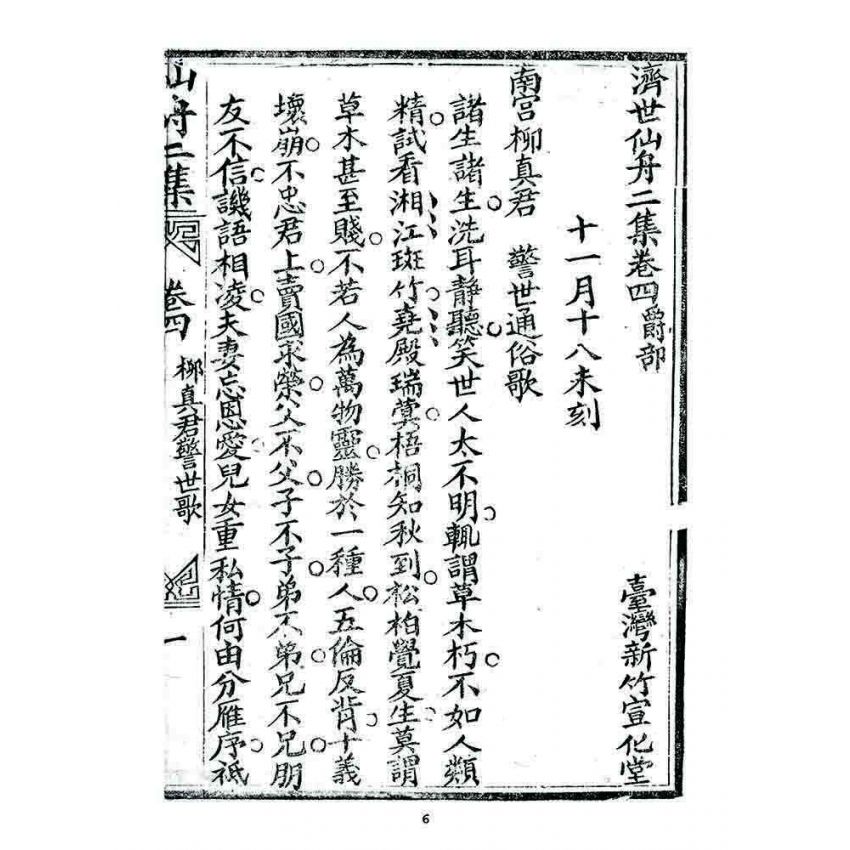 濟世仙舟二集卷四 爵部 臺灣新竹宣化堂
十一月十八未刻
南宮柳真君 警世通俗歌
諸生諸生。洗耳靜聽。笑世人太不明。輒謂草木朽。不如人類
精。試看湘江斑竹堯殿瑞蓂。梧桐知秋到。松柏覺夏生。莫謂
草木甚至賤。不若人為萬物靈。勝於一種人。五倫反背。十義
壞崩。不忠君上。賣國求榮。父不父。子不子。弟不弟。兄不兄。朋
友不信。譏語相凌。夫妻忘恩愛。兒女重私情。何由分雁序。祗
仙舟二集 卷四 柳真君警世歌 一
6